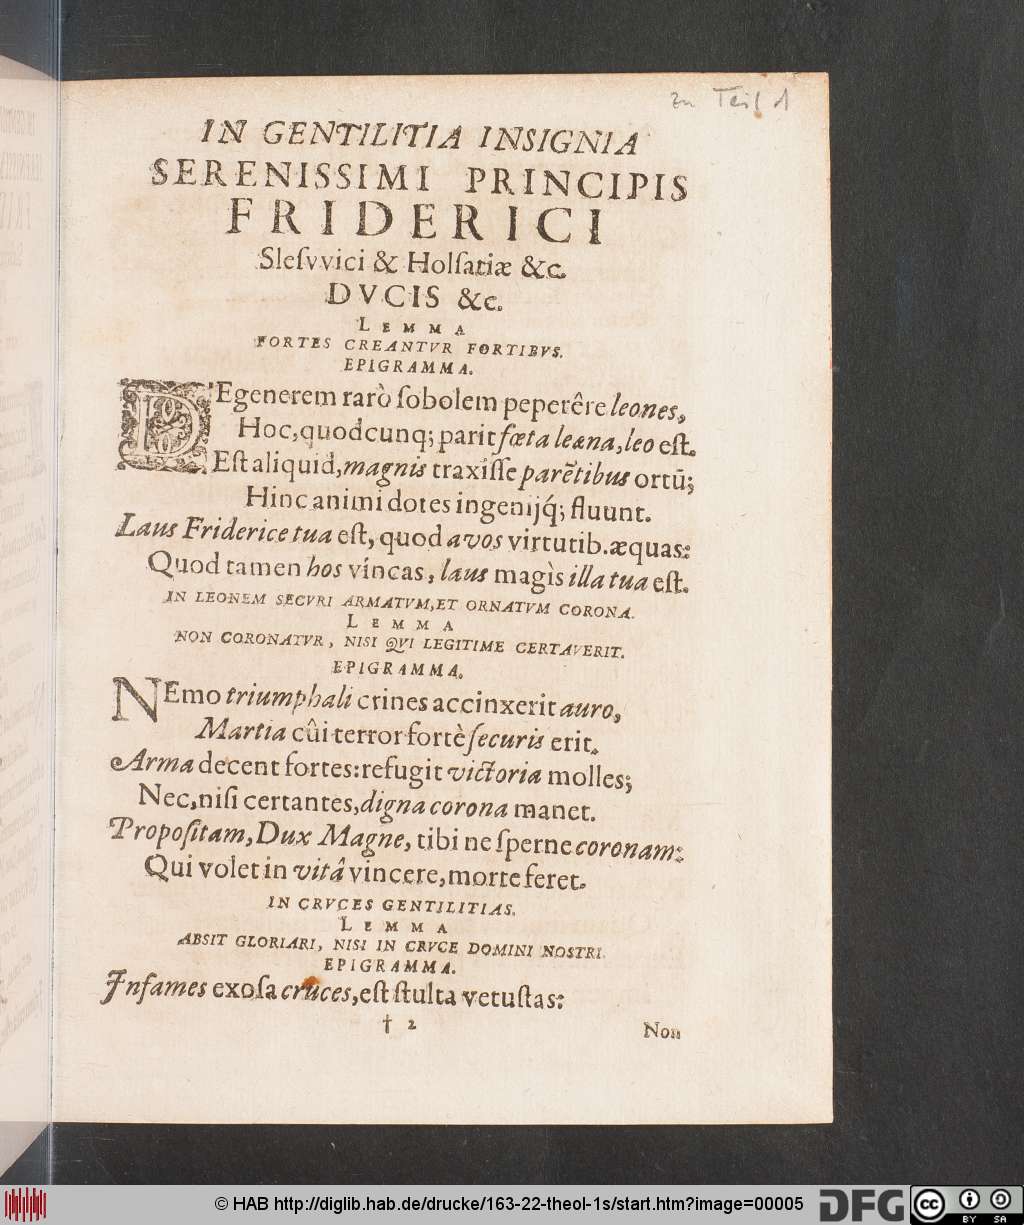 zu Teil 1
IN GENTILITIA INSIGNIA
SERENISSIMI PRINCIPIS
FRIDERICI
Slesvvici & Holsatiæ &c.
DVCIS &c.
LEMMA
FORTES CREANTVR FORTIBVS.
EPIGRAMMA.
DEgenerem rarò ſobolem peperêre leones,
Hoc, quodcunq; parit fœta leæna, leo eſt.
Eſt aliquid, magnis traxiſſe parẽtibus ortũ;
Hinc animi dotes ingenijq́; fluunt.
Laus Friderice tua eſt, quod avos virtutib. æquas:
Quod tamen hos víncas, laus magìs illa tua eſt.
IN LEONEM SECVRI ARMATVM, ET ORNATVM CORONA.
LEMMA
NON CORONATVR, NISI QVI LEGITIME CERTAVERIT.
EPIGRAMMA.
NEmo triumphali crines accinxerit auro,
Martia cûi terror fortè ſecuris erit.
Arma decent fortes: refugit victoria molles;
Nec, niſi certantes, digna corona manet.
Propoſitam, Dux Magne, tibi ne ſperne coronam:
Qui volet in vitâ vincere, morte feret.
IN CRVCES GENTILITIAS.
LEMMA
ABSIT GLORIARI, NISI IN CRVCE DOMINI NOSTRI.
EPIGRAMMA.
Infames exoſa cruces, eſt ſtulta vetuſtas:
† 2
Non
© HAB http://diglib.hab.de/drucke/163-22-theol-1s/start.htm?image=00005
DFG
cc
BY SA